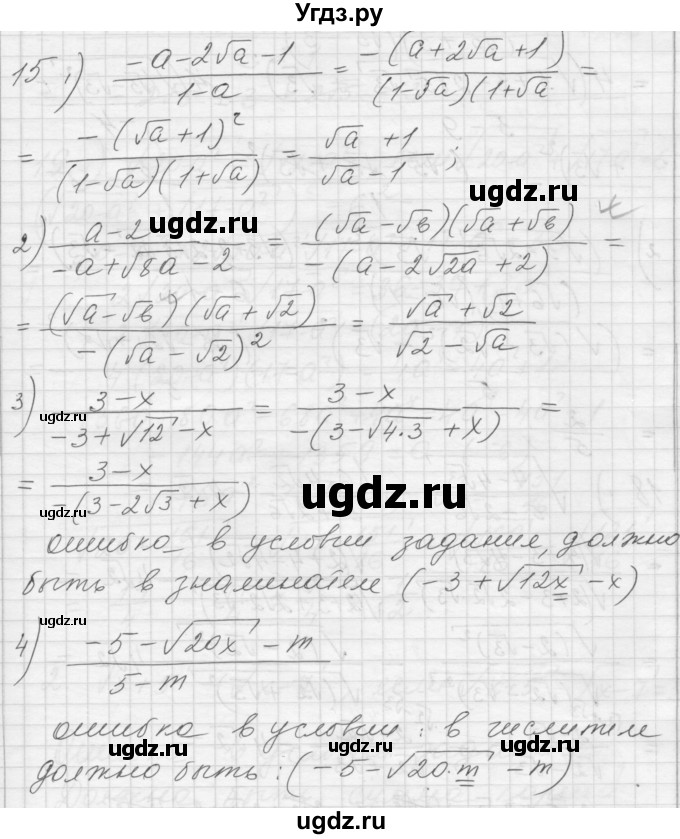 Угдз.ру
15 1) (-a-2√a-1)/(1-a) = (-(a+2√a+1))/((1-√a)(1+√a) =
= (-(√a+1)²)/((1-√a)(1+√a)) = (√a+1)/(√a-1);
ugdz.ru
ugdz.ru
2) (a-2)/(-a+√8a-2) = ((√a-√в)(√a+√в))/(-(a-2√2a+2)) =
= ((√a-√в)(√a+√2))/(-(√a-√2)²) = (√a+√2)/(√2-√a)
ugdz.ru
3) (3-x)/(-3+√12-x) = (3-x)/(-(3-√4·3+x)) =
= (3-x)/(-(3-2√3+x)
ugdz.ru
ugdz.ru
ошибка в условии задания, должно
быть в знаминателе (-3+√12x-x)
ugdz.ru
4) (-5-√20x-m)/(5-m)
ошибка в условии: в числителе
ugdz.ru
ugdz.ru
должно быть: (-5-√20·m-m)
ugdz.ru
ugdz.ru